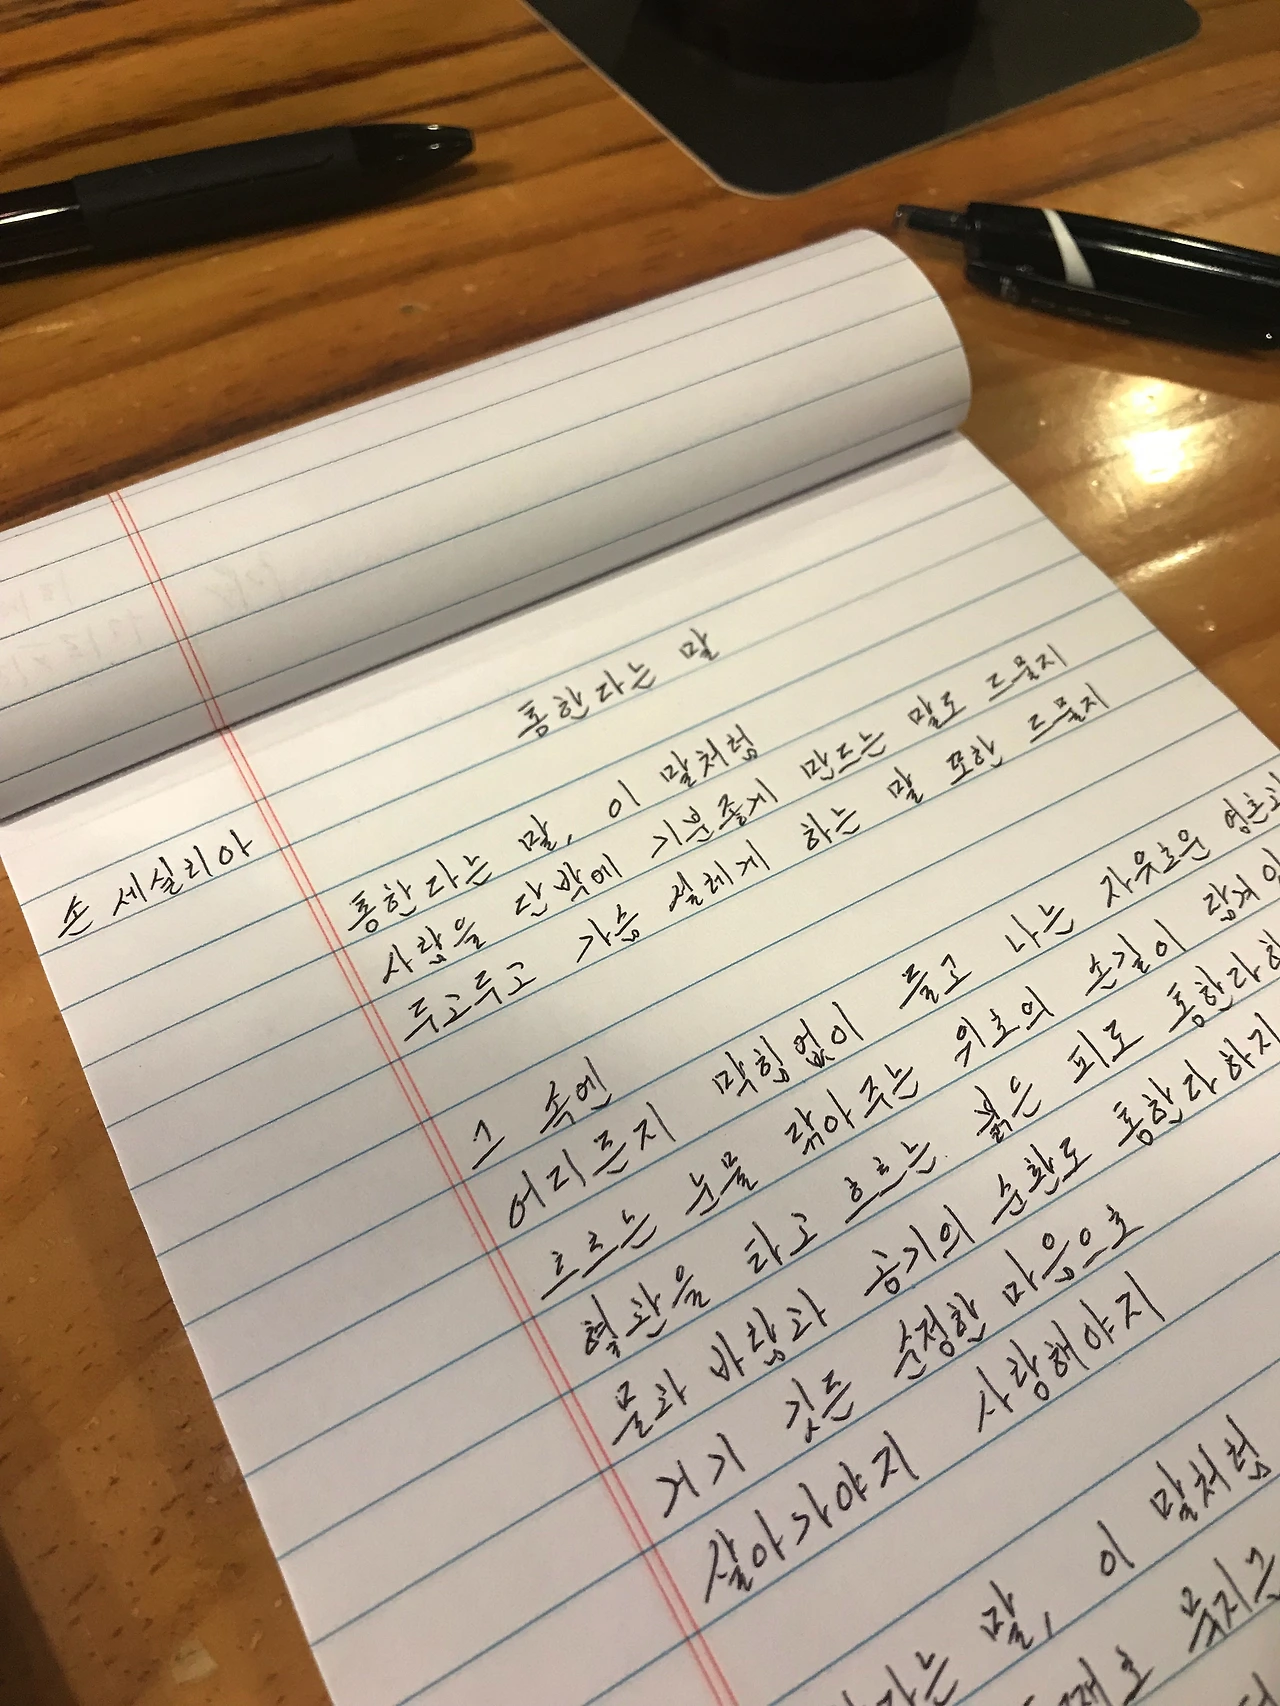 통한다는 말
손 세실리아
통한다는 말, 이 말처럼
사람을 단박에 기분좋게 만드는 말도 드물지
두고두고 가슴 설레게 하는 말 또한 드물지
그 속엔
어디든지 막힘없이 들고 나는 자유로운 영혼과
흐르는 눈물 닦아주는 위로의 손길이 담겨있
혈관을 타고 흐르는 붉은 피도 통한다하
물과 바람과 공기의 순환도 통한다하지
거기 깃든 순정한 마음으로
살아가야지 사랑해야지
말, 이 말처럼
묵지근